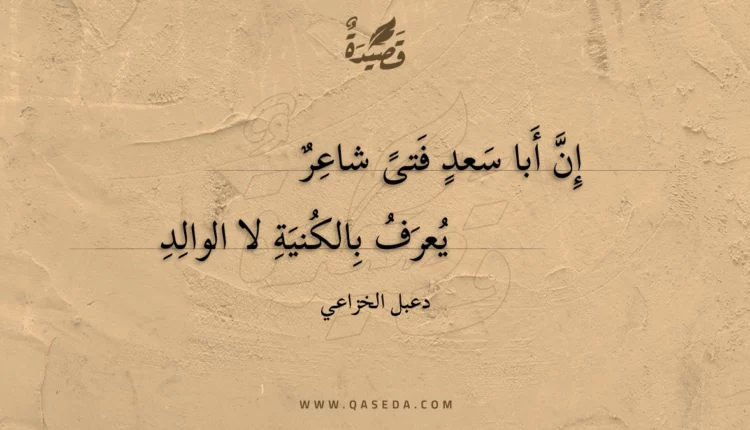 قَصِيدَةٌ
إِنَّ أَبا سَعدٍ فَتىً شاعِرٌ
يُعرَفُ بِالكُنيَةِ لا الوالِدِ
دعبل الخزاعي
WWW.QASEDA.COM